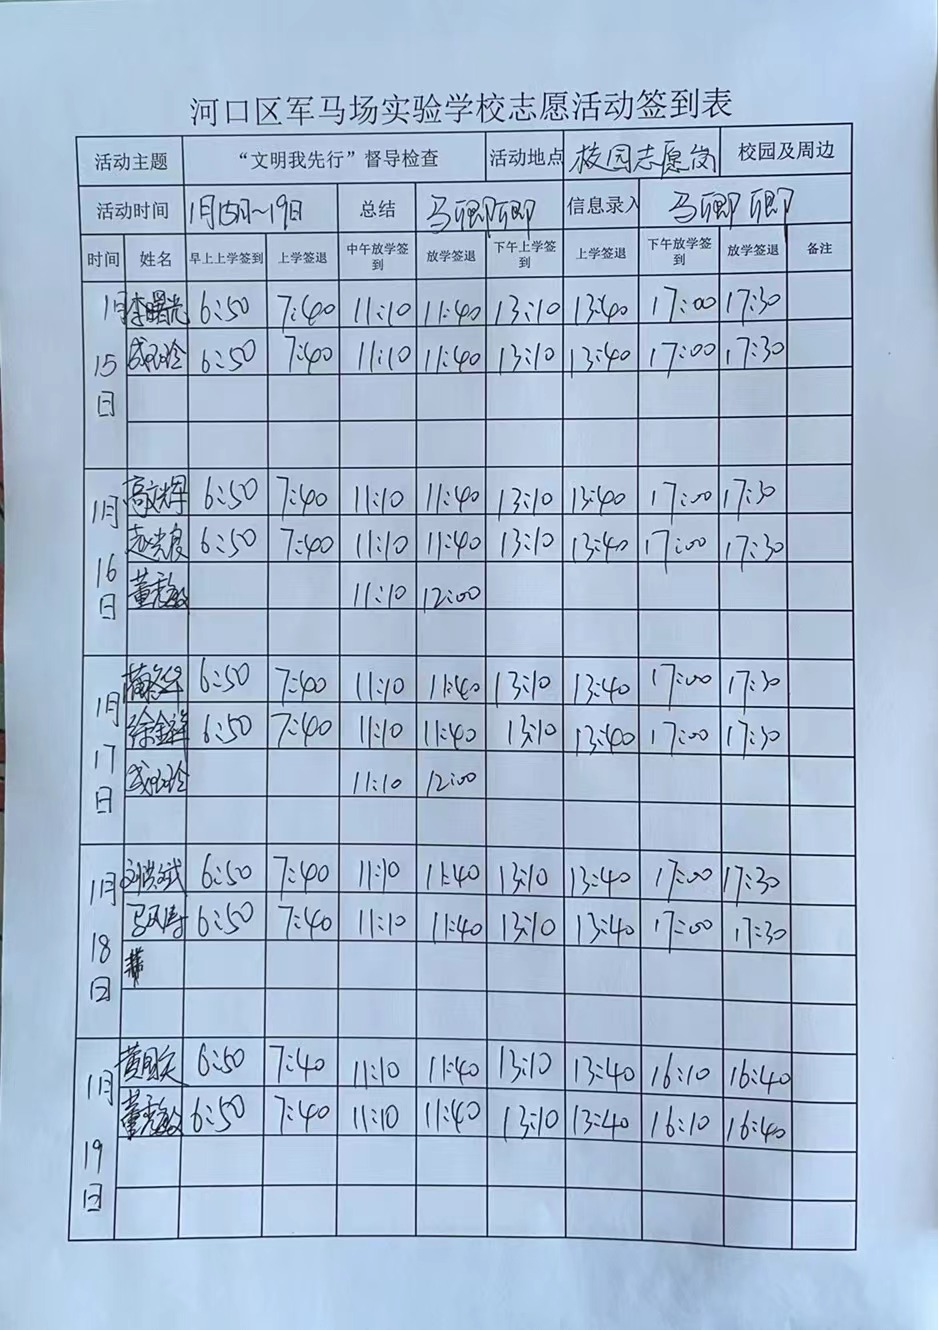 河口区军马场实验学校志愿活动签到表
活动主题 “文明我先行”督导检查 活动地点 校园志愿岗 校园及周边
活动时间 1月15日~19日 总结 马卿卿 信息录入 马卿卿
时间 姓名 早上上学签到 上学签退 中午放学签到 放学签退 下午上学签到 上学签退 下午放学签到 放学签退 备注
1月15日 李曙光 6:50 7:40 11:10 11:40 13:10 13:40 17:00 17:30
6:50 7:40 11:10 11:40 13:10 13:40 17:00 17:30
1月16日 高文辉 6:50 7:40 11:10 11:40 13:10 13:40 17:00 17:30
赵光良 6:50 7:40 11:10 11:40 13:10 13:40 17:00 17:30
董秀敏 11:10 12:00
1月17日 6:50 7:40 11:10 11:40 13:10 13:40 17:00 17:30
徐金祥 6:50 7:40 11:10 11:40 13:10 13:40 17:00 17:30
11:10 12:00
1月18日 刘洪斌 6:50 7:40 11:10 11:40 13:10 13:40 17:00 17:30
6:50 7:40 11:10 11:40 13:10 13:40 17:00 17:30
1月19日 6:50 7:40 11:10 11:40 13:10 13:40 16:10 16:40
董秀敏 6:50 7:40 11:10 11:40 13:10 13:40 16:10 16:40